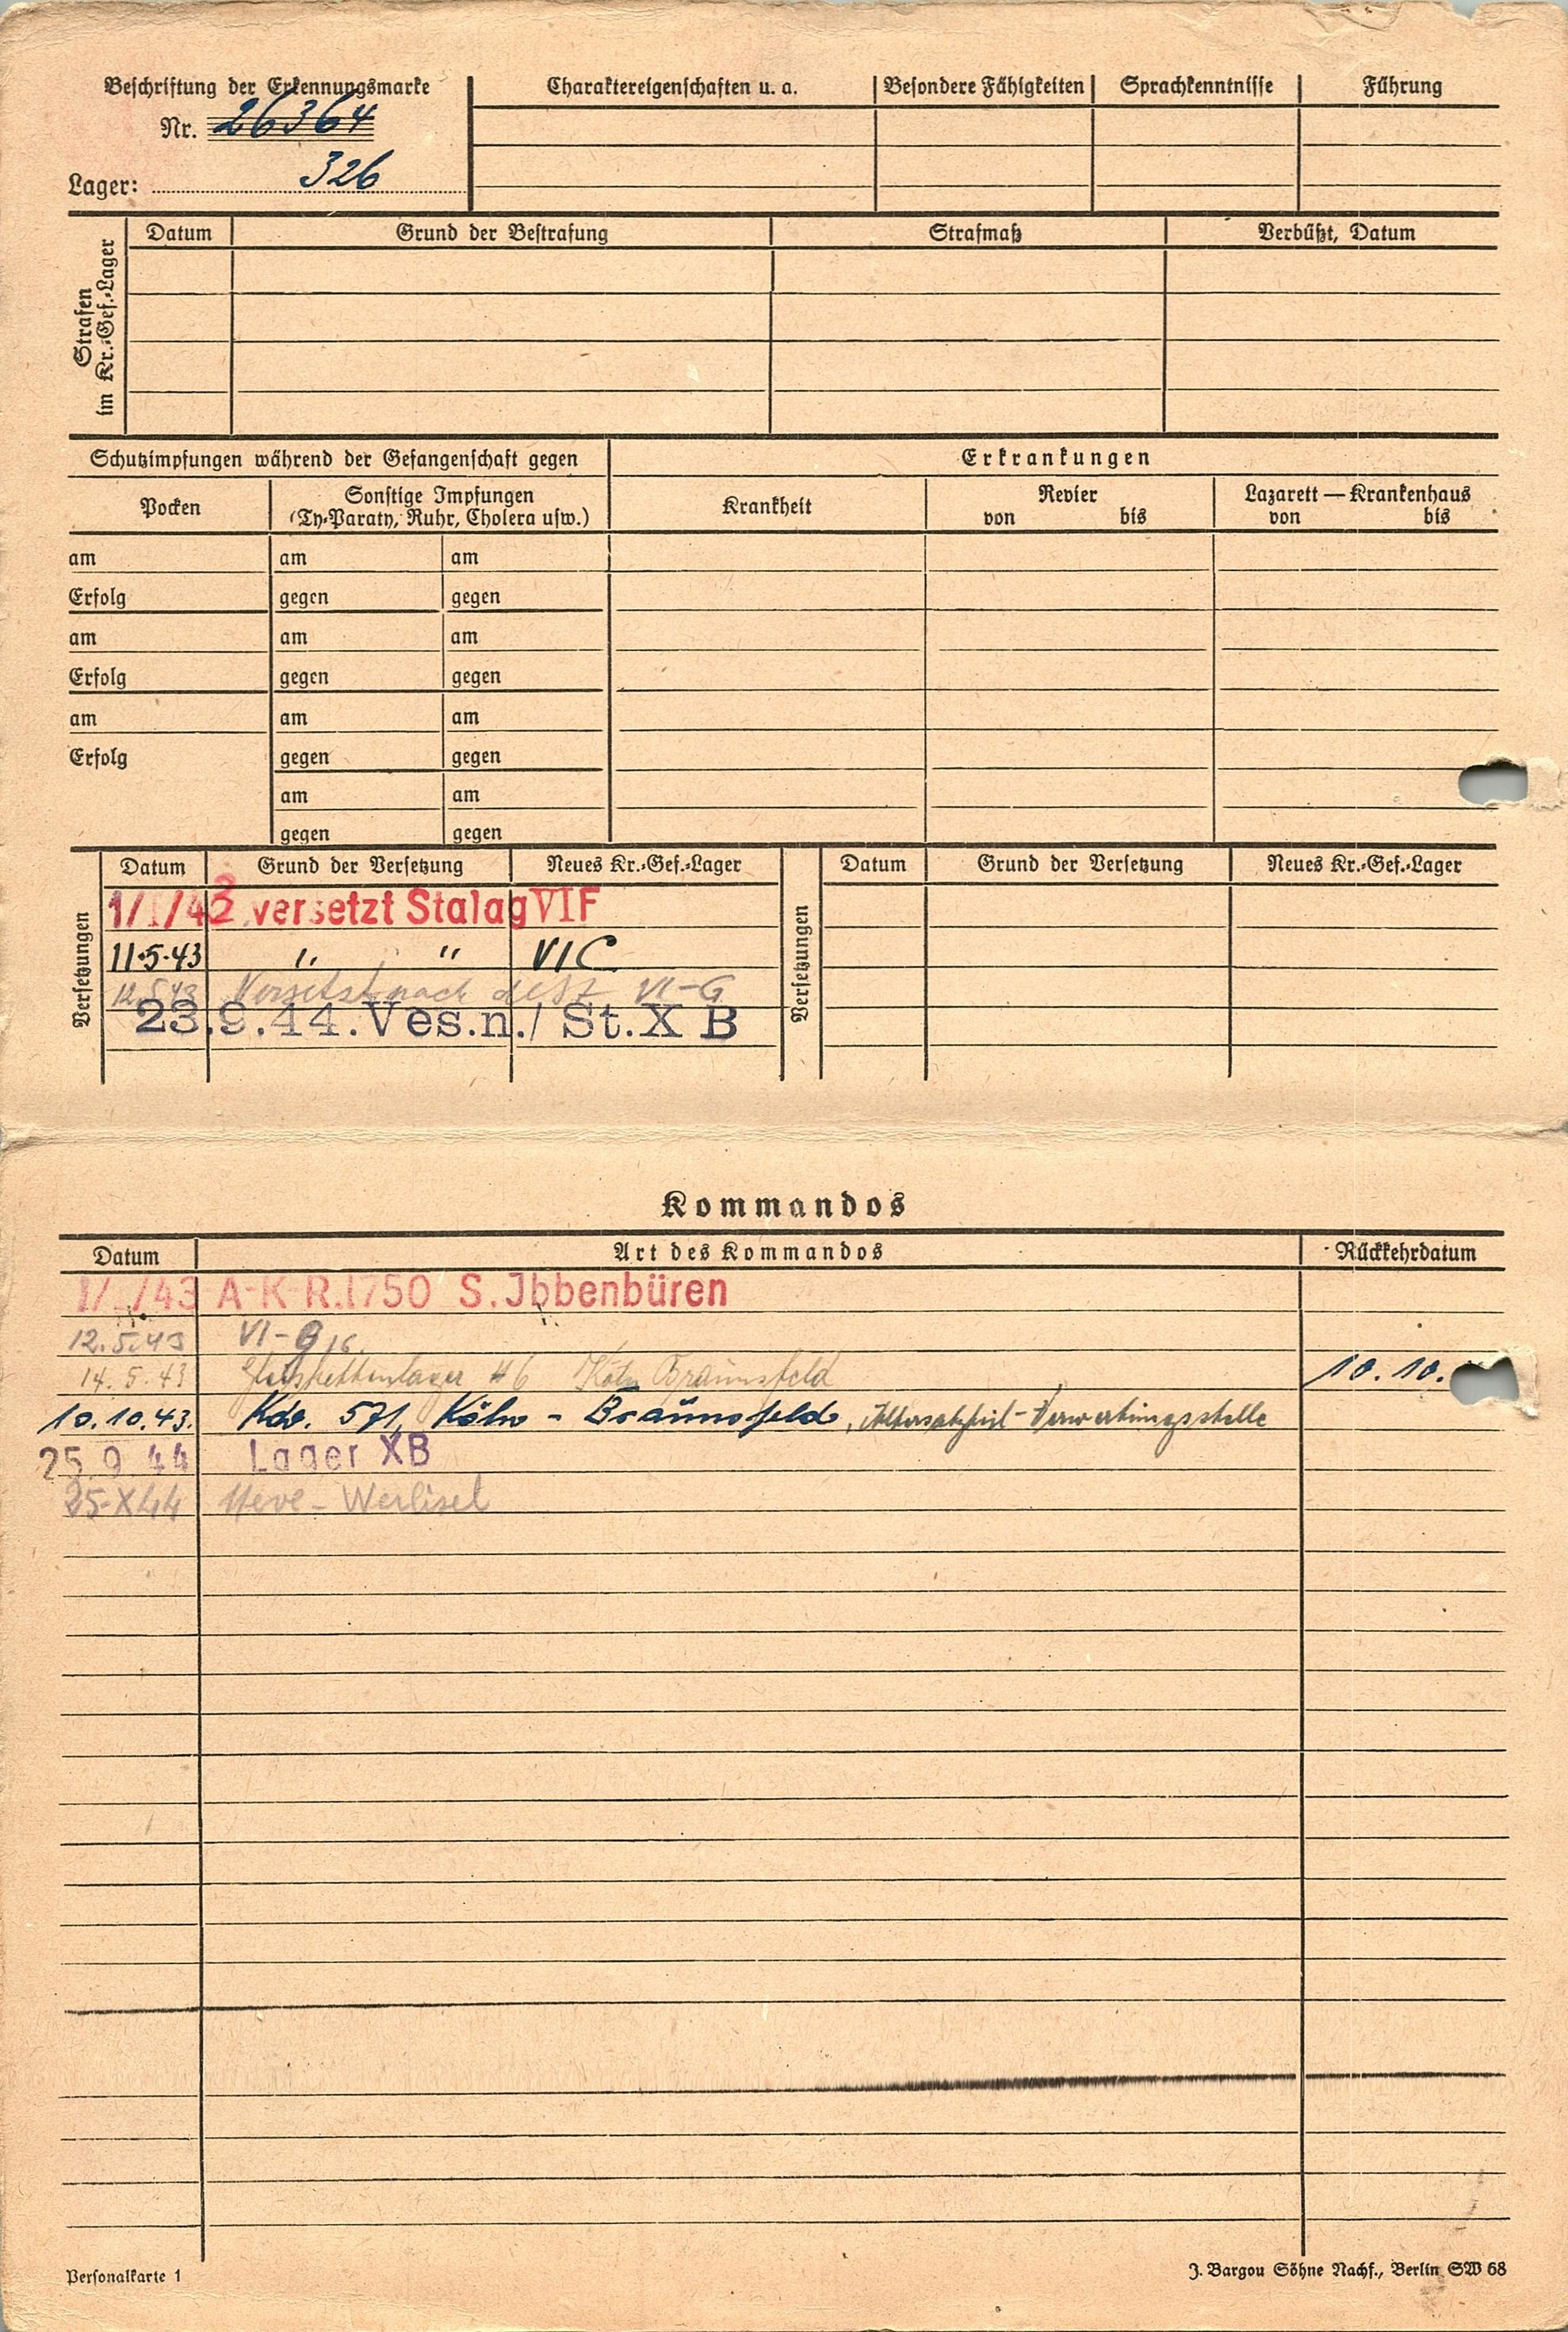 Beschriftung der Erkennungsmarke
Nr. 26364
Lager: 326
Charaktereigenschaften u. a. Besondere Fähigkeiten Sprachkenntnisse Führung
Strafen
im Kr.-Gef.-Lager
Datum Grund der Bestrafung Strafmaß Verbüßt, Datum
Schutzimpfungen während der Gefangenschaft gegen
Erkrankungen
Pocken
Sonstige Impfungen
(Ty-Paraty, Ruhr, Cholera usw.)
Krankheit
Revier
von bis
Lazarett — Krankenhaus
von bis
am am am
Erfolg gegen gegen
am am am
Erfolg gegen gegen
am am am
Erfolg gegen gegen
am am
gegen gegen
Versetzungen
Datum Grund der Versetzung Neues Kr.-Gef.-Lager
versetzt Stalag VI F
11.5.43 " " VI C
12.5.43 Versetzt nach VI-G
23.9.44. Ves.n./ St. X B
Versetzungen
Datum Grund der Versetzung Neues Kr.-Gef.-Lager
Kommandos
Datum Art des Kommandos Rückkehrdatum
/43 A-K-R.1750 S. Jbbenbüren
12.5.43 VI-G
14.5.43 Köln Braunsfeld 10.10.
10.10.43. Kdo. 571, Köln - Braunsfeld, Verwertungsstelle
25 9 44 Lager XB
25-X44
Personalkarte 1
J. Bargou Söhne Nachf., Berlin SW 68